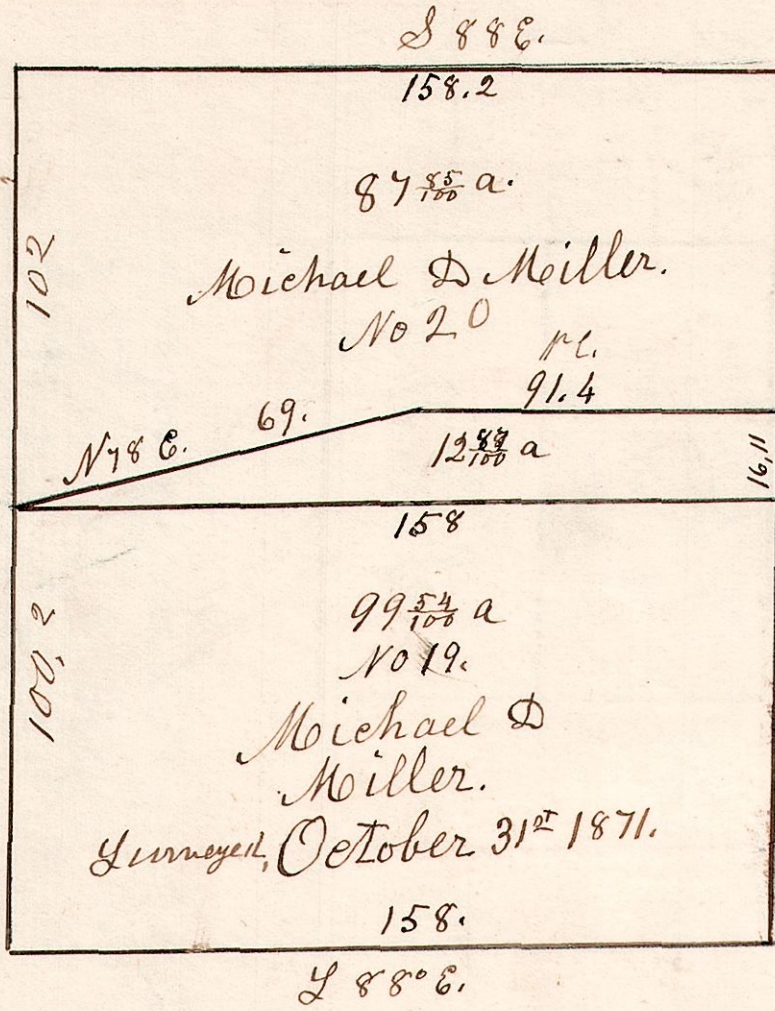 S 88 E.
158.2
87 85/100 a.
102
Michael D Miller.
No 20
pl.
91.4
69.
N 78 E.
12 87/100 a
16,11
158
100,2
99 54/100 a
No 19.
Michael D
Miller.
Surveyed, October 31st 1871.
158.
S 88° E.